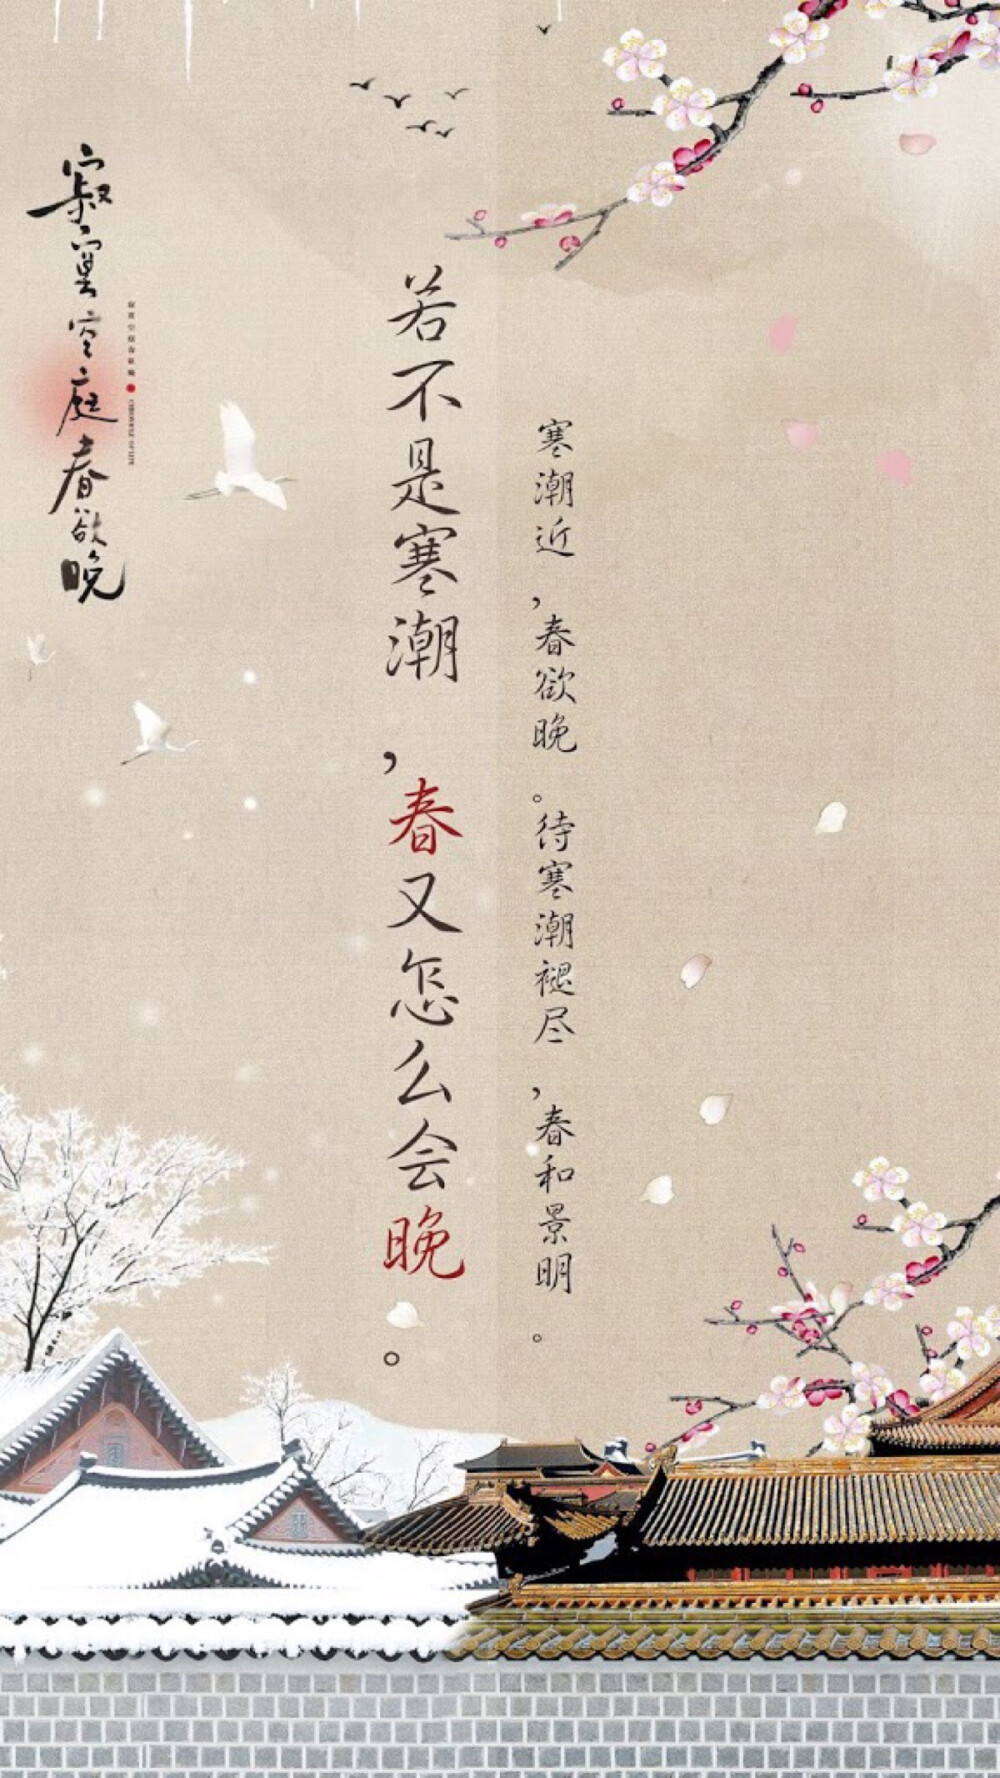 寂寞空庭春欲晚
寂寞空庭春欲晚
若不是寒潮,春又怎么会晚。
寒潮近,春欲晚。待寒潮褪尽,春和景明。